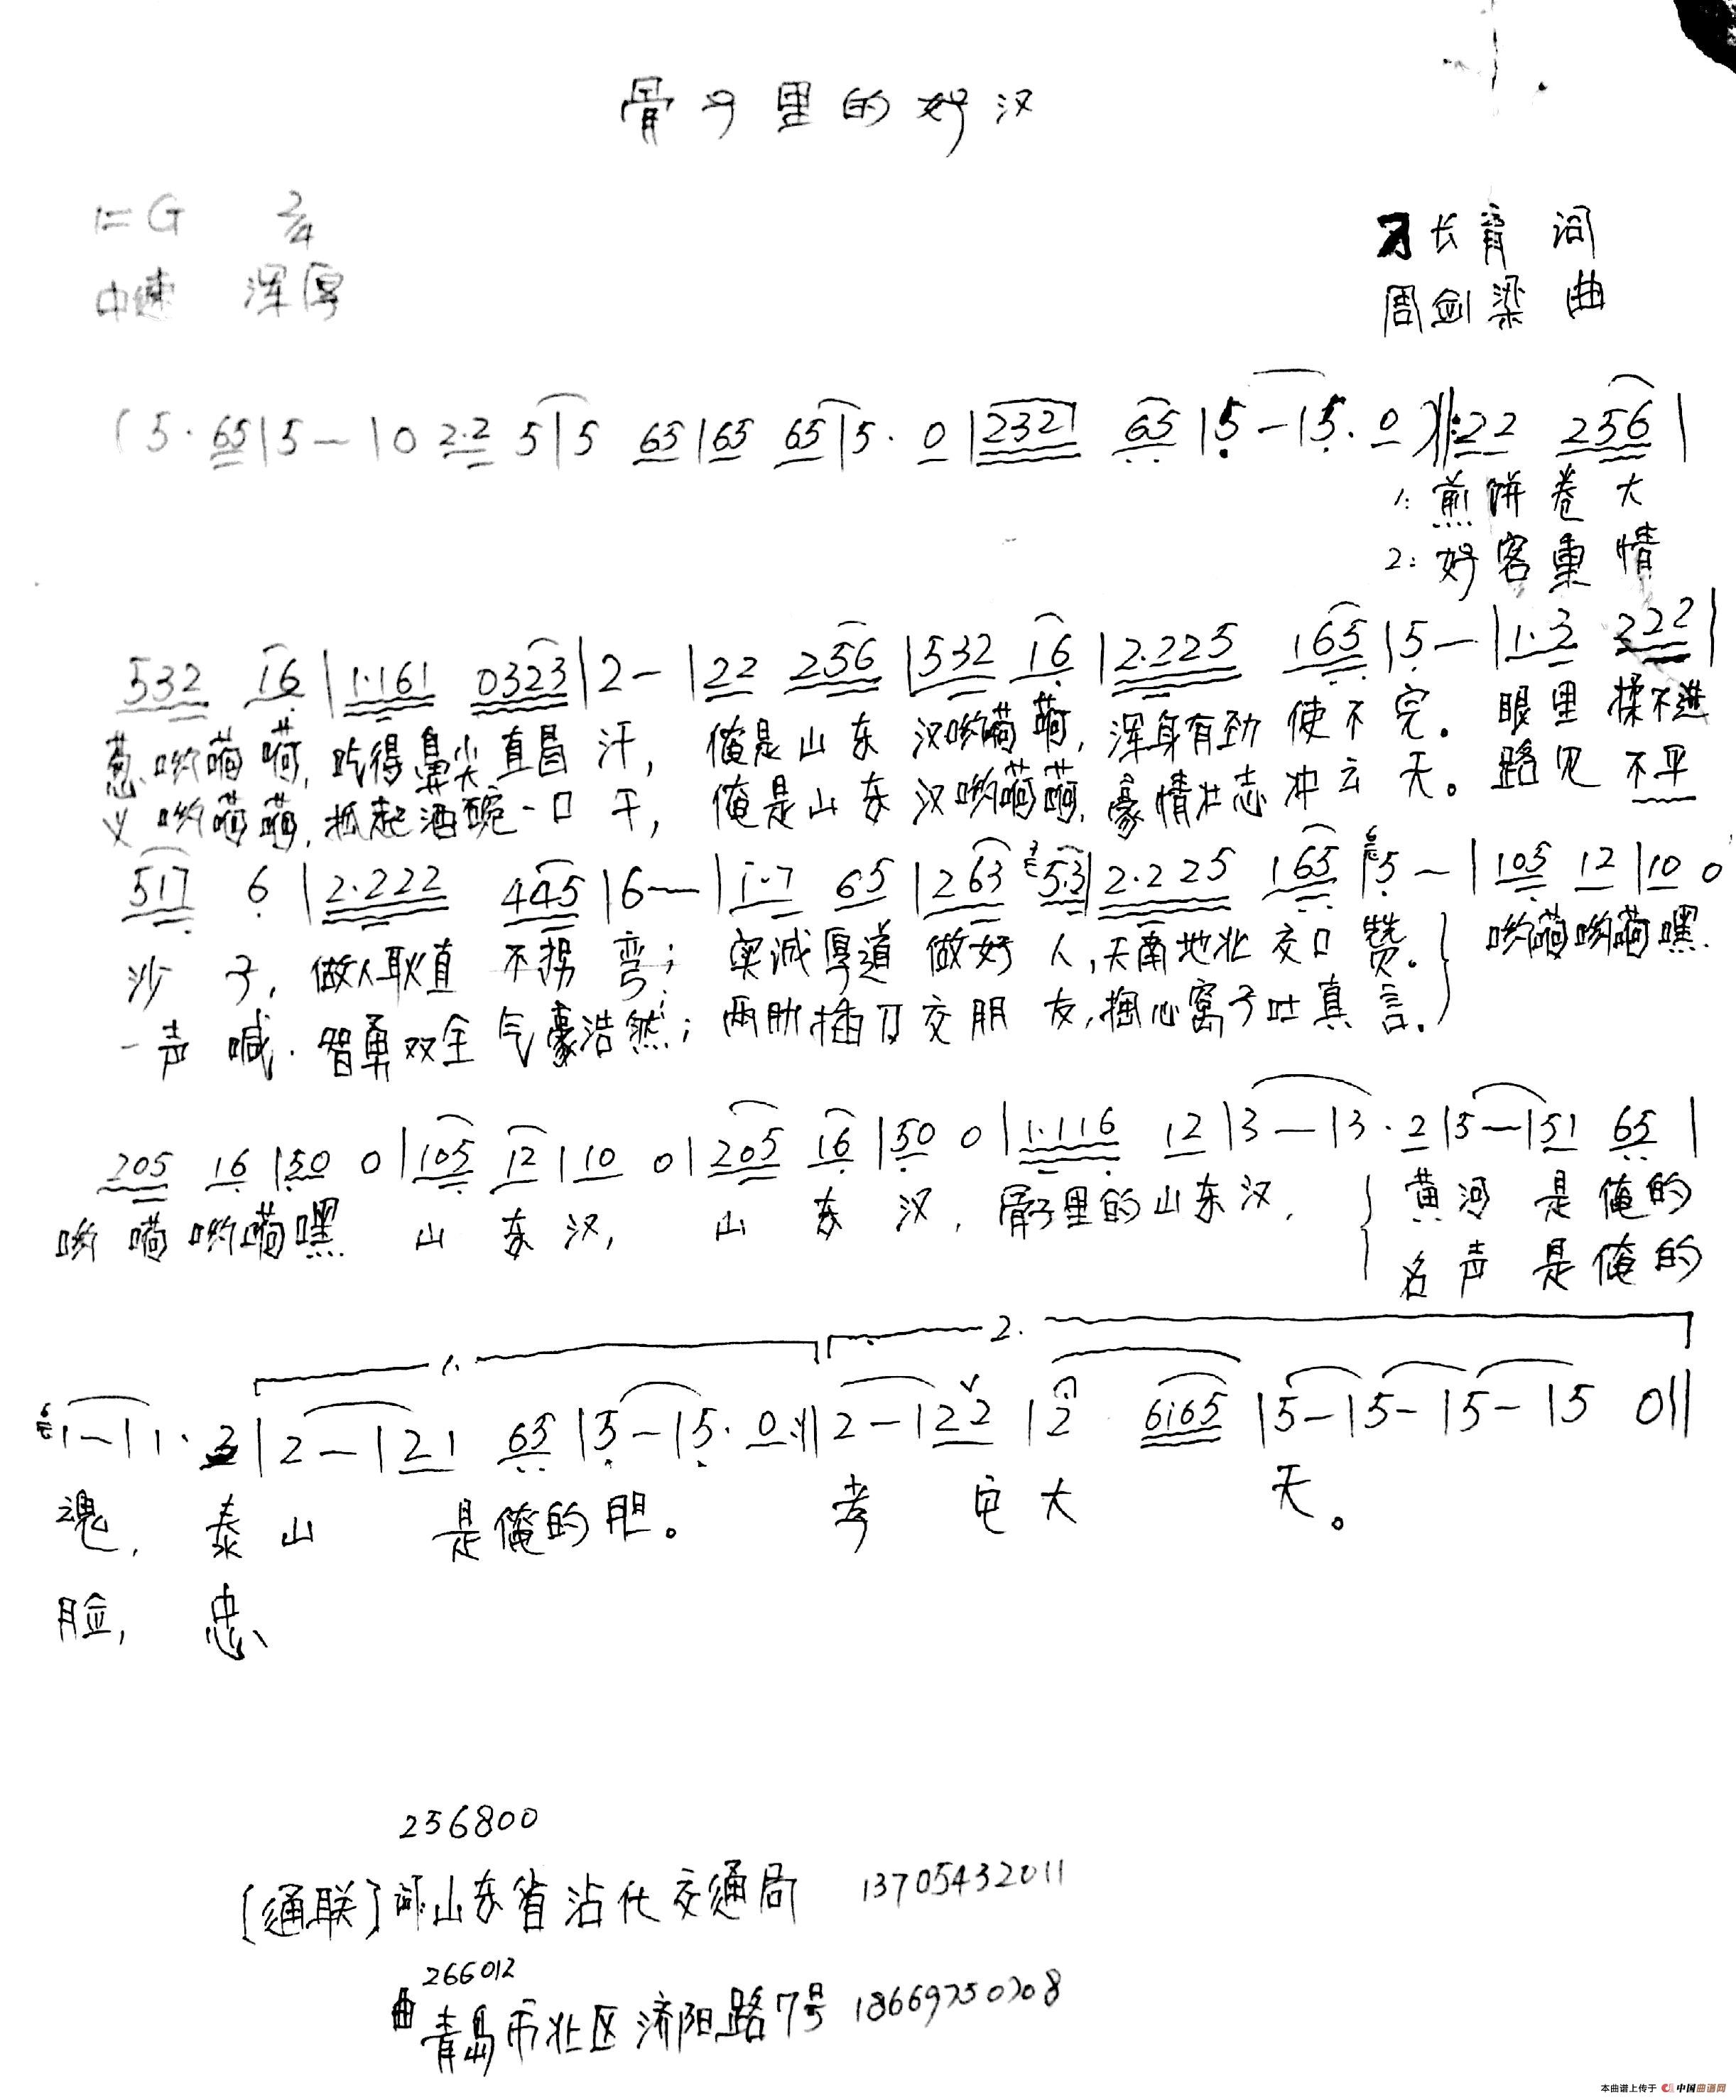 骨子里的好汉
1=G 2/4
刁长育 词
中速 浑厚
周剑梁 曲
( 5· 65 | 5 — | 0 2·2 5 | 5 65 | 65 65 | 5· 0 | 2321 65 | 5 — | 5· 0 ) ‖: 22 256 |
1: 煎饼卷大
2: 好客重情
532 16 | 1·161 0323 | 2 — | 22 256 | 532 16 | 2·225 165 | 5 — | 1·3 222 |
葱哟嗬嗬, 吃得鼻尖直冒汗, 俺是山东汉哟嗬嗬, 浑身有劲使不完。 眼里揉不进
义哟嗬嗬, 抓起酒碗一口干, 俺是山东汉哟嗬嗬, 豪情壮志冲云天。 路见不平
517 6 | 2·222 445 | 6 — | 1·7 65 | 263 53 | 2·225 165 | 5 — | 105 12 | 10 0
沙子, 做人耿直不拐弯; 实诚厚道做好人, 天南地北交口赞。 哟嗬哟嗬嘿
一声喊. 智勇双全气豪浩然; 两肋插刀交朋友, 掏心窝子吐真言.
205 16 | 50 0 | 105 12 | 10 0 | 205 16 | 50 0 | 1·116 12 | 3 — | 3· 2 | 5 — | 51 65 |
哟嗬哟嗬嘿 山东汉, 山东汉, 骨子里的山东汉, 黄河是俺的
名声是俺的
1. 2.
1 — | 1· 3 | 2 — | 21 65 | 5 — | 5· 0 :‖ 2 — | 22 | 2 6165 | 5 — | 5 — | 5 — | 5 0 ‖
魂, 泰山 是俺的胆。 孝 大 天。
脸, 忠、
256800
[通联] 词:山东省沾化交通局 13705432011
266012
曲 青岛市北区济阳路7号
本曲谱上传于 中国曲谱网